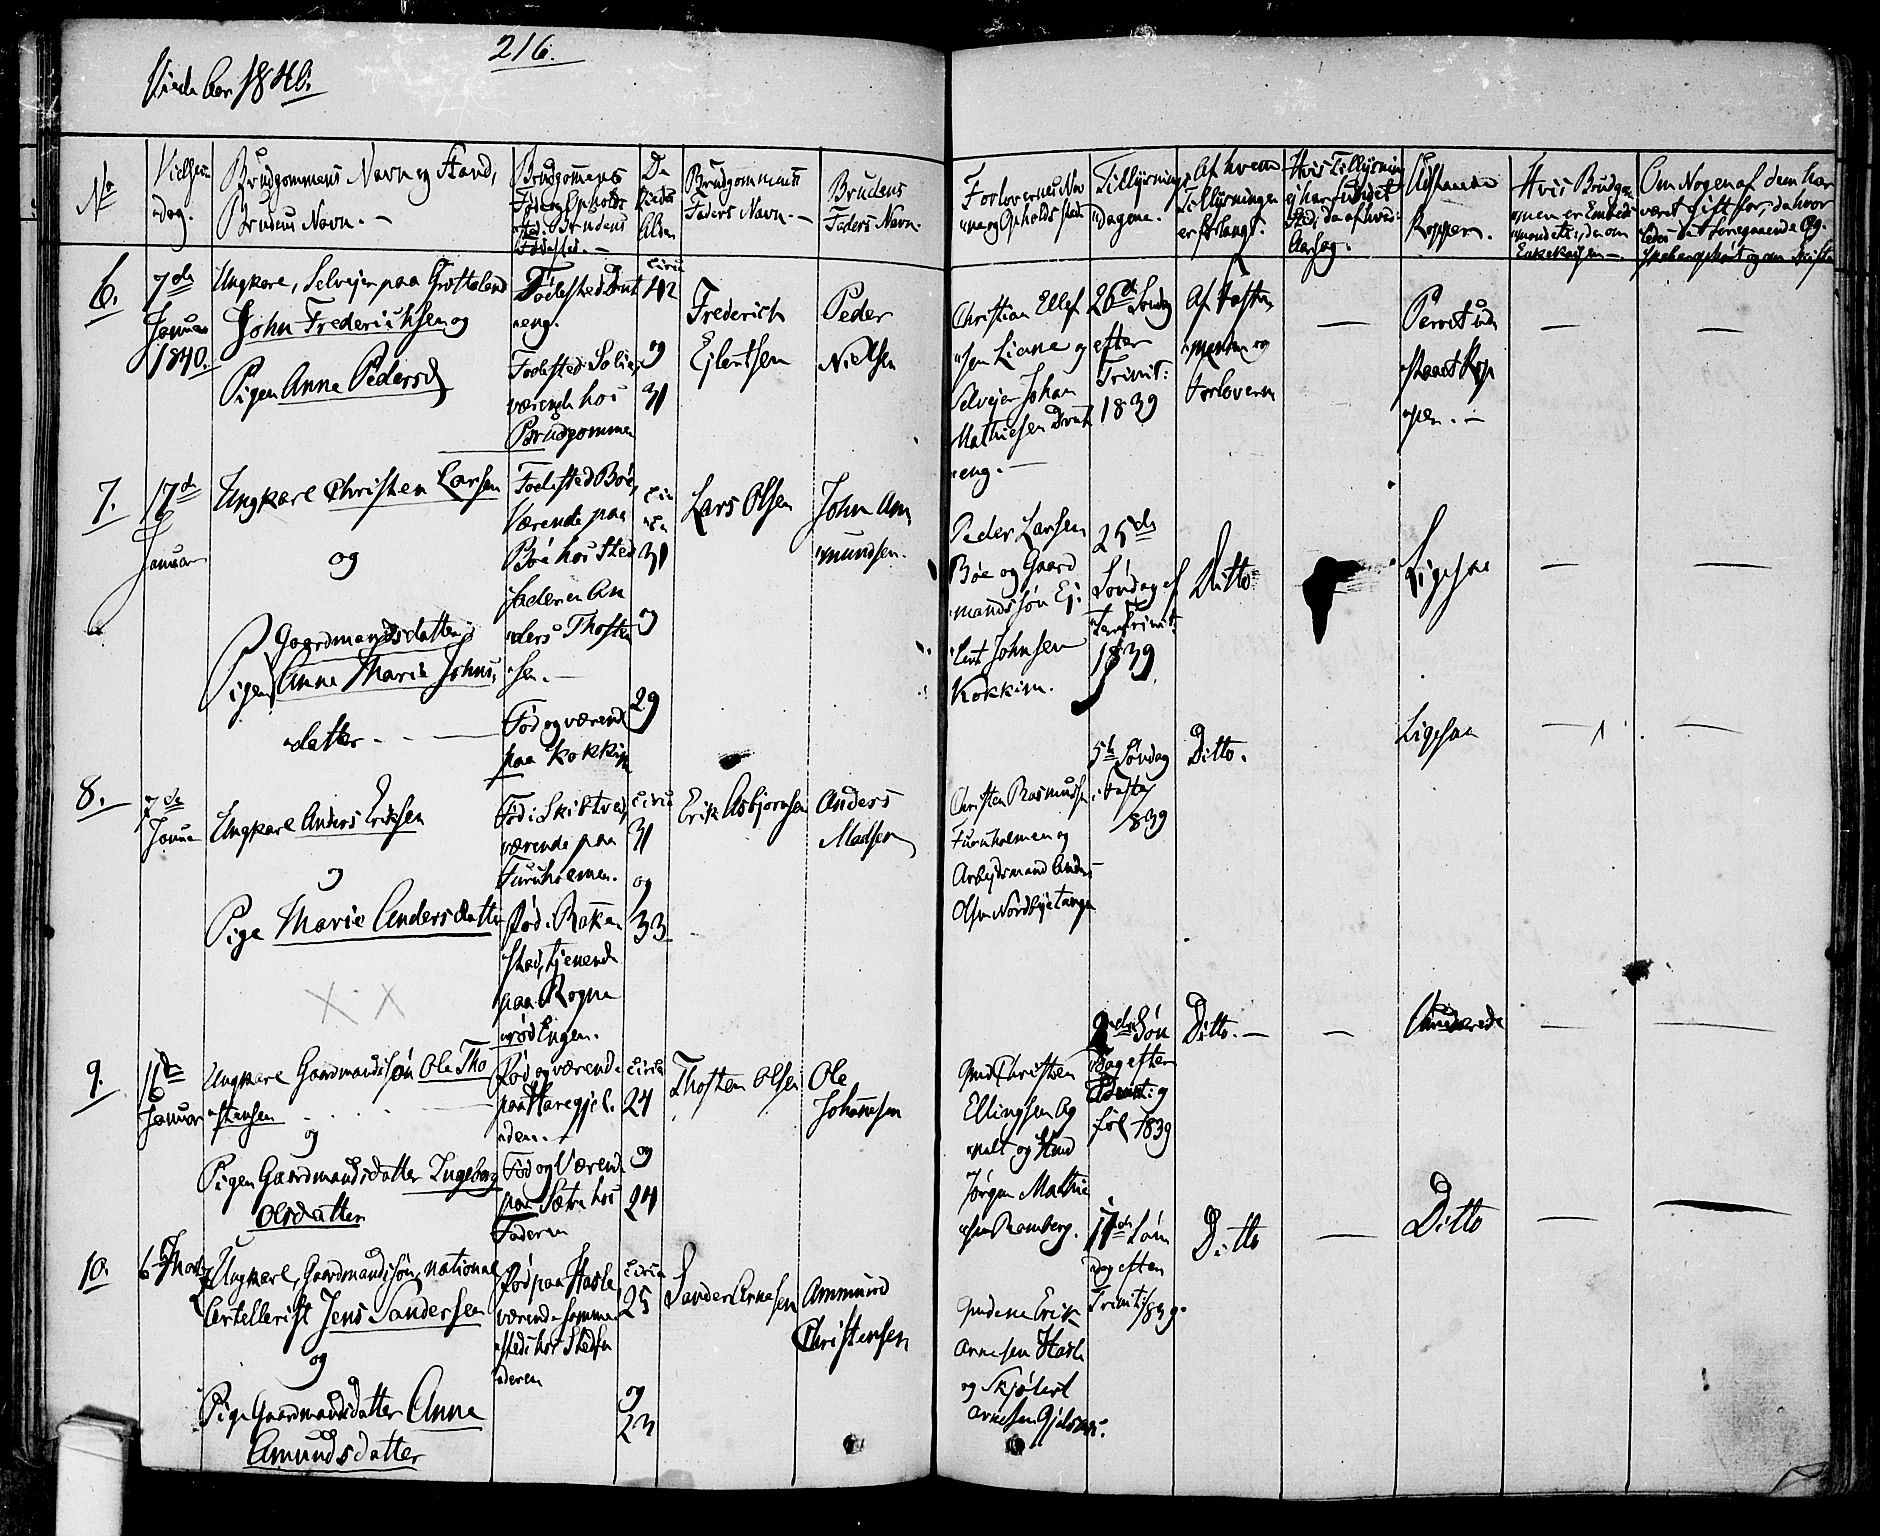 216.
Viede Aar 1840.
No
Vielses
dag.
Brudgommens Navn og Stand,
Brudens Navn. —
Brudgommens
Fødested
Brudens
Fødested. —
De
Viedes
Alder
Brudgommens
Faders Navn. —
Brudens
Faders Navn.
Forlovernes Nav
ne og Opholdssted
Tillysnings
dagene.
Af hvem
Tillysningen
er forlangt.
Hvis Tillysning
ej har fundet
Sted, da af hvad
Aarsag.
Kopper.
Hvis Brudgom
men er Embeds
mand etc., da om
Enkekassen —
Om Nogen af dem har
været gift før, da hvor
6.
7de
Januar
1840.
Ungkarl, Selvejer paa
John Frederichsen og
Pigen Anne Pedersd
Fødested
eng.
Fødested
værende hos
Brudgommen
circa
42
og
31
Frederich
Ejlertsen
Peder
Nielsen
Christian Ellef
sen Liane og
Selvejer Johan
Mathiesen
eng. —
26de Søndag
efter
Trinit:
1839
Af
og
Forloverne
—
—
—
7.
17de
Januar
Ungkarl Christen Larsen
og
Gaardmandsdatter
Pigen Anne Marie Johns
datter. —
Fødested Bøe,
Værende paa
Bøe hos Sted
faderen An
ders Thosten
sen. —
Fød og værende
paa Kokkim
cir
ca
31
og
29
Lars Olsen
John Am
mundsen.
Peder Larsen
Bøe og Gaard
mandssøn Ej
lert Johnsen
Kokkim.
25de
Søndag ef
ter Trinit:
1839
Ditto
Ligesaa
—
—
8.
7de
Janua
Ungkarl Anders Eriksen
og
Pige Marie Andersdatter
Fød i Skibtvet,
værende paa
Furuholmen.
Fød i Rakke
stad, tjenende
paa Rogne
rød Engen.
circa
31
og
33
Erik Asbjornsen
Anders
Madsen
Christen Rasmussen
Furuholmen og
Arbejdsmand Anders
Olsen Nordbyetangen
5te Søndag
i Faste
1839
Ditto.
Ligesaa
—
—
9.
16de
Januar
Ungkarl Gaardmandssøn Ole Tho
stensen
og
Pigen Gaardmandsdatter Ingeborg
Olsdatter
Fød og værende
paa Haregjel
den. —
Fød og Værende
paa Sætre hos
Faderen
circa
24
og
24
Thosten Olsen
Ole
Johannsen
Gmd Christen
Ellingsen Ag
nalt og Gmd
Jørgen Mathie
sen Ramberg.
2den Søn
dag efter
og
føl 1839
Ditto. —
—
—
—
10.
6
Ungkarl, Gaardmandssøn, national
Artellerist Jens Sandersen
og
Pige Gaardmandsdatter Anne
Amundsdatter
Fød paa Hasle
værende samme
steds hos Stedfa
deren
circa
25
og
23
Sander Arnesen
Ammund
Christensen
Gmdene Erik
Arnesen Hasle
og Skjølert
Arnesen
17de Søn
dag efter
Trinit: 1839.
Ditto
—
Ditto
—
—